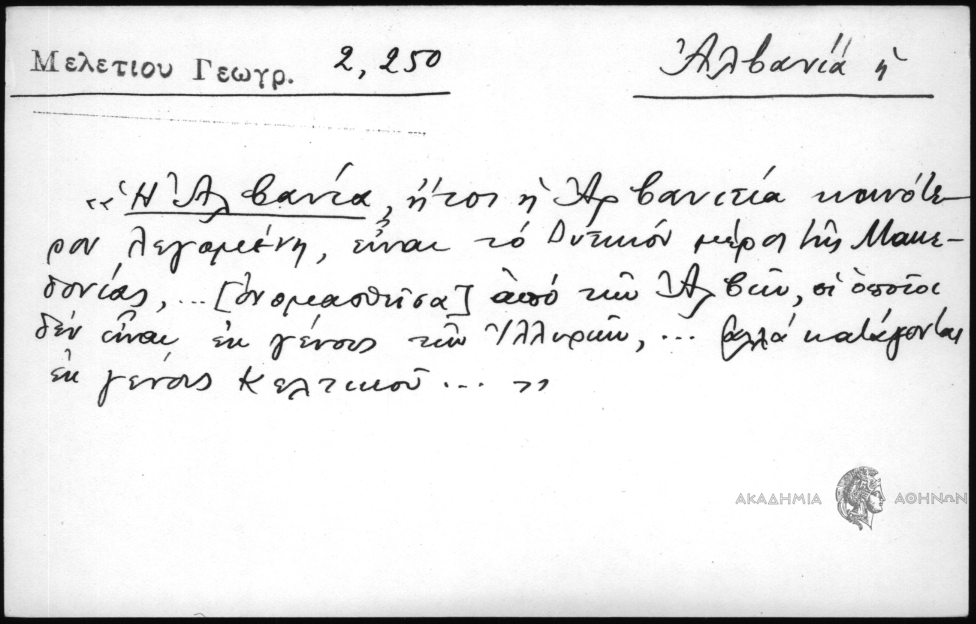 Μελετιου Γεωγρ. 2, 250
Ἀλβανία ἡ
«Ἡ Ἀλβανία, ἤτοι ἡ Ἀρβανιτία κοινότε-
ρον λεγομένη, εἶναι τό Δυτικόν μέρος τῆς Μακε-
δονίας, ... [ὀνομασθεῖσα] ἀπό τῶν Ἀλβῶν, οἱ ὁποῖοι
δέν εἶναι ἐκ γένους τῶν Ἰλλυρῶν, ... ἀλλά κατάγονται
ἐκ γένους Κελτικοῦ ... »
ΑΚΑΔΗΜΙΑ ΑΘΗΝΩΝ